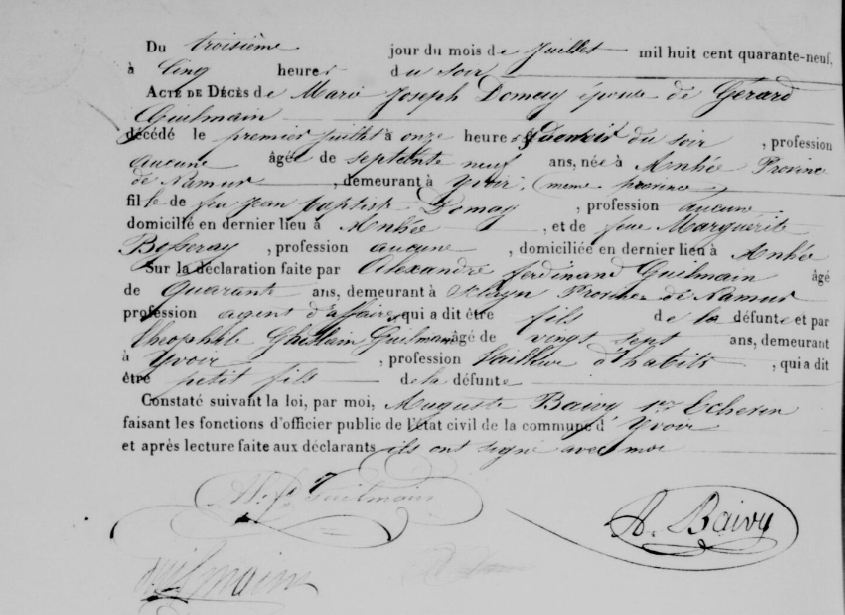 Du troisième jour du mois de Juillet mil huit cent quarante-neuf,
à Cinq heures du soir
ACTE DE DÉCÈS de Marie Joseph Domay épouse de Gérard
Guilmain
décédé le premier juillet à onze heures du soir, profession
aucune âgée de septante neuf ans, née à Anhée Province
de Namur, demeurant à Yvoir, (même province
fille de feu Jean Baptiste Domay, profession aucune
domicilié en dernier lieu à Anhée, et de feue Marguerite
, profession aucune, domiciliée en dernier lieu à Anhée
Sur la déclaration faite par Alexandre Ferdinand Guilmain âgé
de Quarante ans, demeurant à Sclayn Province de Namur
profession agent d'affaires, qui a dit être fils de la défunte et par
Théophile Ghislain Guilmain âgé de vingt sept ans, demeurant
à Yvoir, profession tailleur d'habits, qui a dit
être petit fils de la défunte
Constaté suivant la loi, par moi, Auguste Baivy 1er Echevin
faisant les fonctions d'officier public de l'état civil de la commune d'Yvoir
et après lecture faite aux déclarants ils ont signé avec moi
Guilmain
A. Baivy
Guilmain